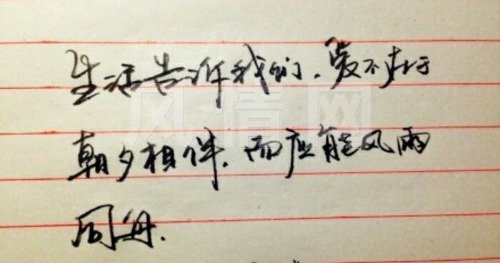 生活告诉我们，爱不在于
朝夕相伴，而应能风雨
同舟.
风情网